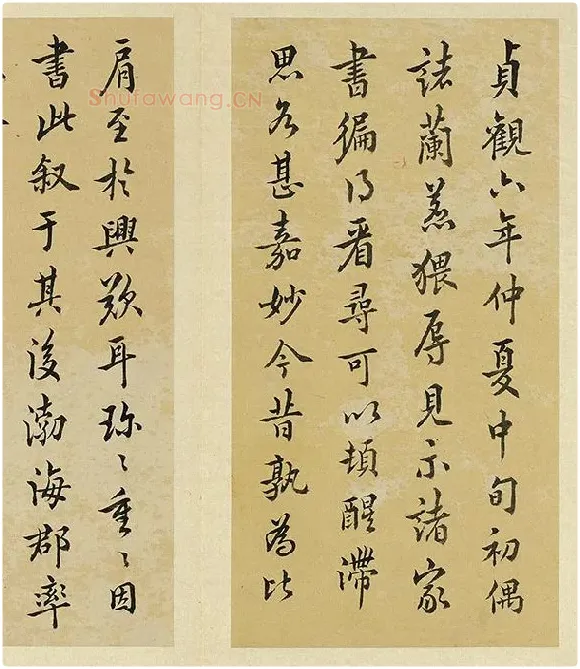 貞觀六年仲夏中旬初偶
諸蘭惹猥辱見示諸家
書徧得看尋可以頓醒滯
思名甚嘉妙今昔孰為比
肩至於興歎耳珎〻重〻因
書此叙于其後渤海郡率
Shufawang.CN